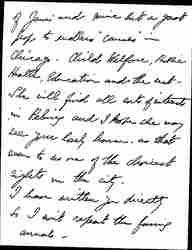 of Jane and mine but a good
prop to endless "causes" in
Chicago. Child Welfare, Public
Health, Education and the rest.
She will find all sorts of interest
in Peking and I hope she may
see your lovely house. as that
seems to me one of the choicest
sights in the city.
I have written you directly
so I will repeat the